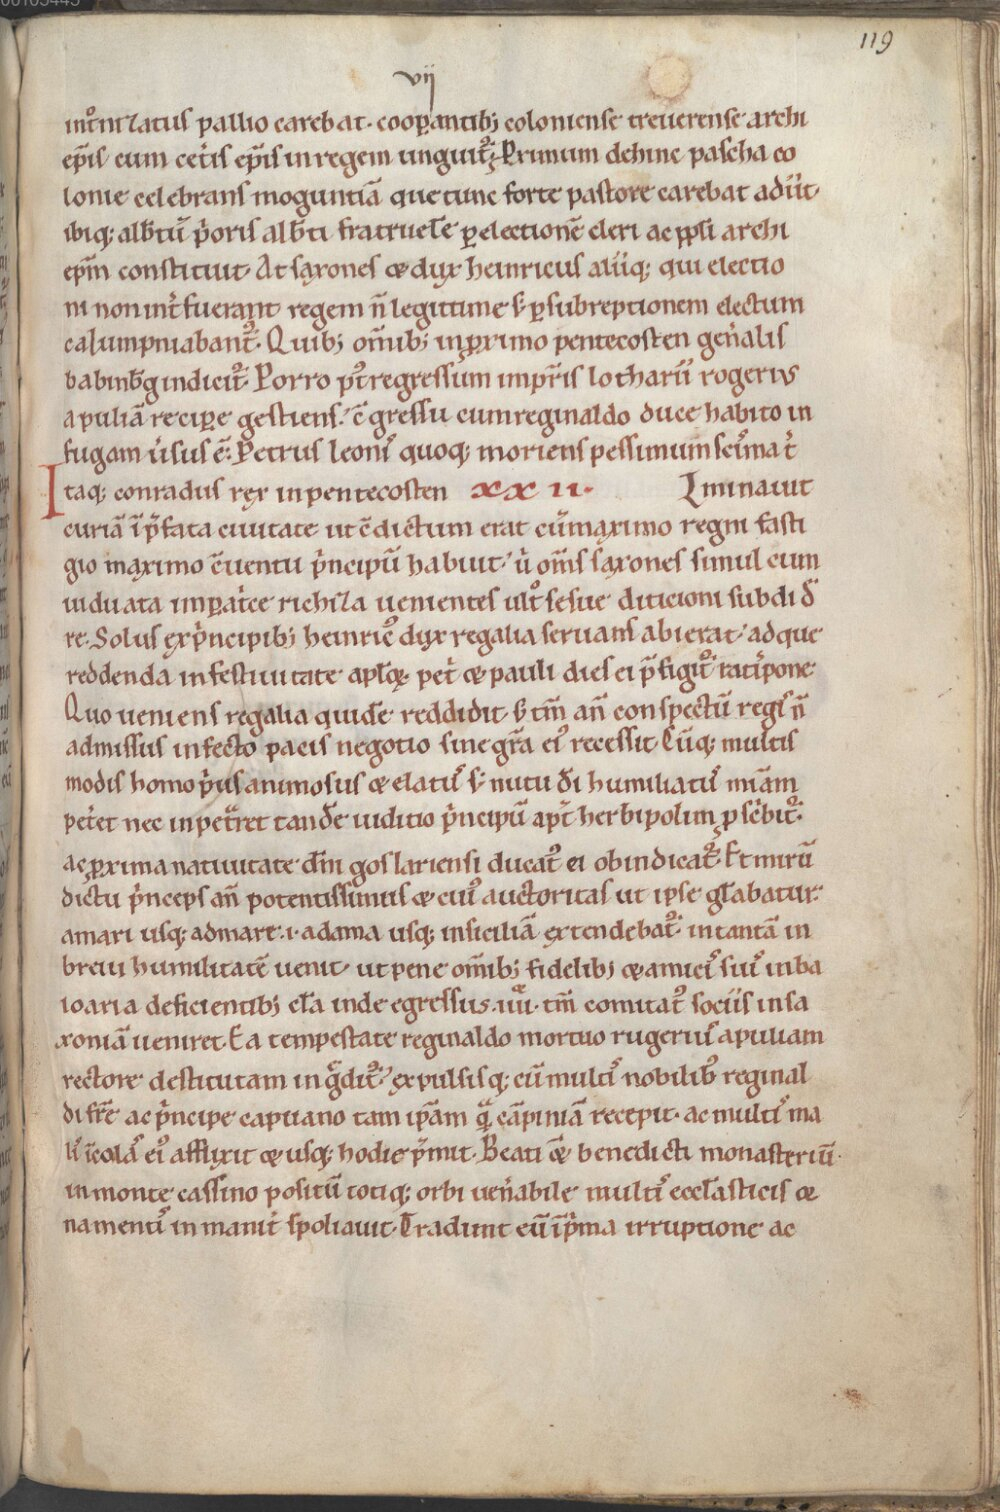 119
vij
intˀniȥatus pallio carebat. cooꝑantibꝫ coloniense treuerense archi
ep̅is cum cet̓is ep̅is in regem unguit᷑. Primum dehinc pascha co
lonie celebrans moguntiā que tunc forte pastore carebat adiit.
ibiqꝫ alb̅tū p̓oris alb̅ti fratruelē ꝑ electionē cleri ac pp̅li archi
ep̅m constituit. At saxones & dux heinricus aliiqꝫ qui electio
ni non int̓fuerant regem n̄ legittime sꝫ ꝑ subreptionem electum
calumpniabant᷑. Quibꝫ om̅ibꝫ in ꝓximo pentecosten gen̓alis
babinb̅g indicit᷑. Porro p᷒t regressum imp̅ris lotharii rogerius
apuliā recipe gestiens. c̅gressu cum reginaldo duce habito in
fugam u̓sus ē. Petrus leonis quoqꝫ moriens pessimum scismat̓
Itaqꝫ conradus rex in pentecosten xxii. Lminauit
curiā ī p̓fata ciuitate ut c̅dictum erat cū maximo regni fasti
gio maximo c̅uentu p̓ncipū habuit. u̓ om̅s saxones simul cum
uiduata imꝑat̓ce richiȥa uenientes ult̓o se sue dicioni subdid̅
re. Solus ex p̓ncipibꝫ heinric᷒ dux regalia seruans abierat. ad que
reddenda in festiuitate apl̅oꝝ pet̓ & pauli dies ei p̅figit᷑ rati̓pone
Quo ueniens regalia quidē reddidit sꝫ tm̅ an̅ conspectū regis n̄
admissus infecto pacis negotio sine gr̅a ei᷒ recessit. Cūqꝫ multis
modis homo p̓us animosus & elatus sꝫ nutu d̅i humiliatus mi̅am
pet̓et nec inpetͣret tandē iuditio p̓ncipū ap̅t herbipolim ꝓsc̓bit᷑.
ac ꝓxima natiuitate dn̅i goslariensi ducat᷒ ei obiudicat᷑. Et mirū
dictu p̓nceps an̅ potentissimus & cui᷒ auctoritas ut ipse gl̅abatur.
a mari usqꝫ ad mare .i. a dama usqꝫ in siciliā extendebat᷑. in tantā in
breui humilitatē uenit. ut pene om̅ibꝫ fidelibꝫ & amicis suis in ba
ioaria deficientibꝫ cl̅a inde egressus .iiii. tm̅ comitat᷒ sociis in sa
xoniā ueniret. Ea tempestate reginaldo mortuo rugerius apuliam
rectore destitutam ingͣdit᷑. expulsisqꝫ cū multis nobilibꝫ reginal
di fr̅e ac p̓ncipe capuano tam ip̅am qͣ cāpiniā recepit. ac multis ma
lis īcolas ei᷒ afflixit & usqꝫ hodie p̓mit. Beati &̅ benedicti monasteriū
in monte cassino positū totiqꝫ orbi uen̓abile multis eccl̅asticis or
namentis inmanit̓ spoliauit. Tradunt eū ī p̓ma irruptione ac